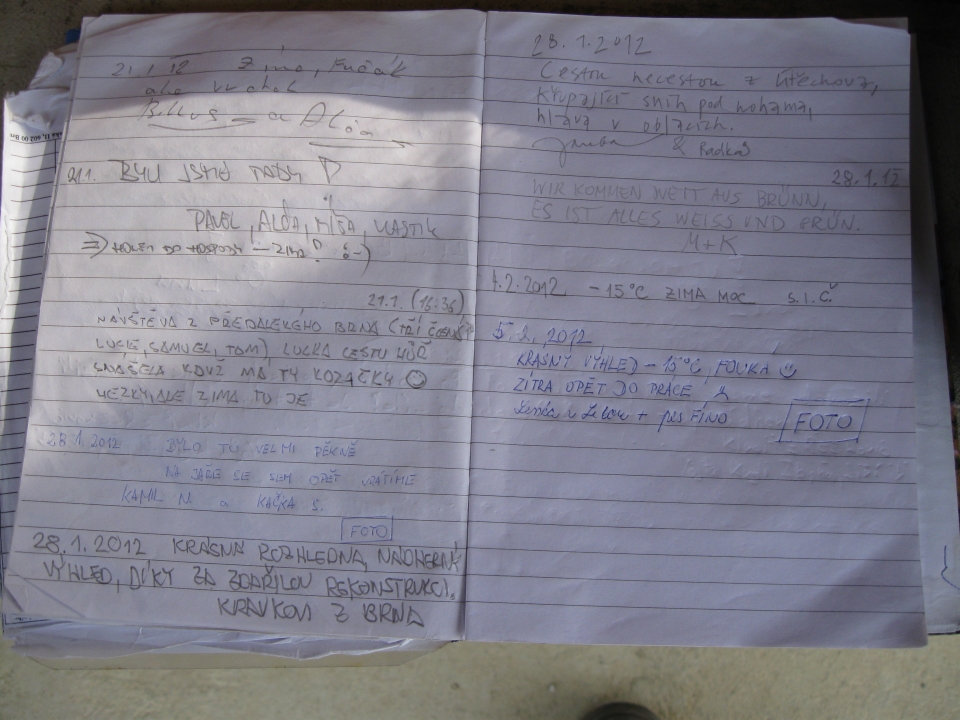 21.1.12 Zima, Fučák
ale vrchol
a Alča
21.1. BYLI JSME TADY
PAVEL, ALČA, MÍŠA, VLASTÍK
⇒ HOLEM DO HOSPODY - ZIMA? :-)
21.1. (16:36)
NÁVŠTĚVA Z PŘEDALEKÉHO BRNA (TŘI
LUCIE, SAMUEL, TOM), LUCKA CESTU HŮŘ
SNÁŠELA KDYŽ MÁ TY KOZAČKY ☺
HEZKY, ALE ZIMA TU JE
28.1.2012 BYLO TU VELMI PĚKNĚ
NA JAŘE SE SEM OPĚT VRÁTÍME
KAMIL N. a KAČKA S.
FOTO
28.1.2012 KRÁSNÁ ROZHLEDNA, NÁDHERNÝ
VÝHLED, DÍKY ZA ZDAŘILOU REKONSTRUKCI.
Z BRNA
28.1.2012
Cestou necestou z Útěchova,
křupající sníh pod nohama,
hlava v oblacích.
& Radka
28.1.12
WIR KOMMEN WEIT AUS BRÜNN,
ES IST ALLES WEISS UND GRÜN.
M+K
4.2.2012 -15°C ZIMA MOC S.I.Č.
5.2.2012
KRÁSNÝ VÝHLED -15°C FOUKÁ ☺
ZÍTRA OPĚT DO PRÁCE
Lenka + pes FÍNO
FOTO